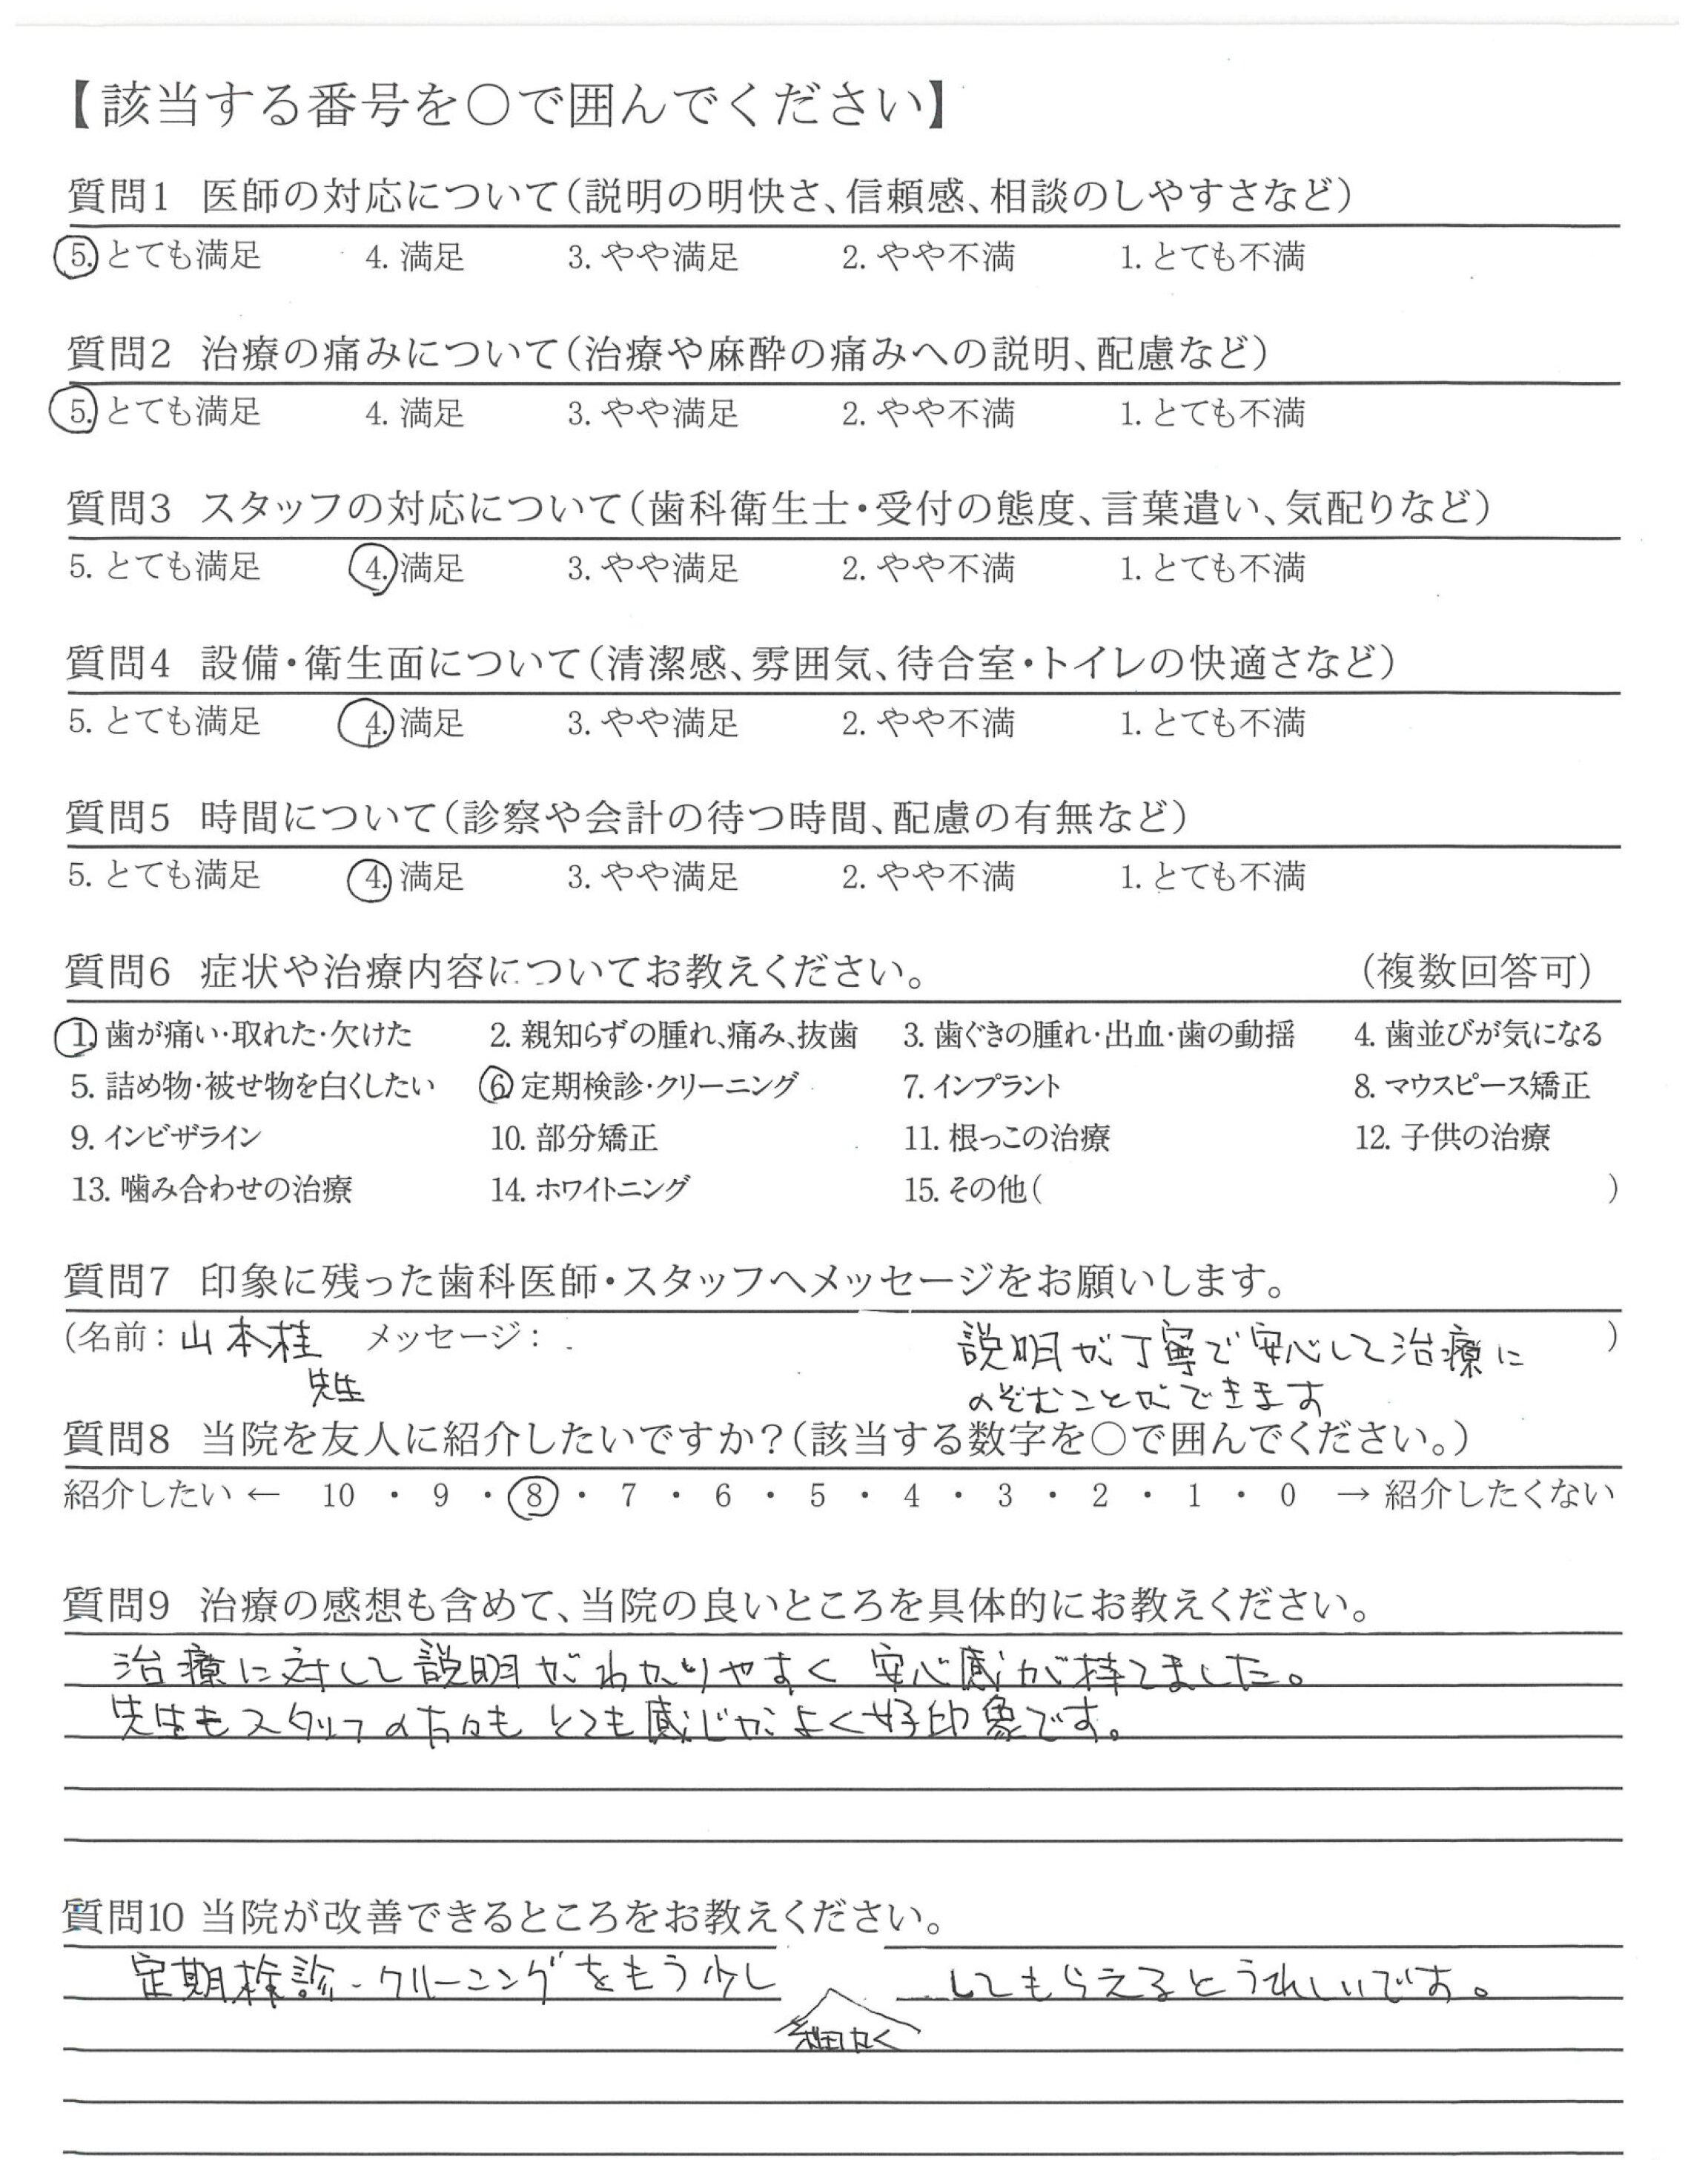 【該当する番号を〇で囲んでください】
質問1 医師の対応について(説明の明快さ、信頼感、相談のしやすさなど)
5. とても満足 4. 満足 3. やや満足 2. やや不満 1. とても不満
質問2 治療の痛みについて(治療や麻酔の痛みへの説明、配慮など)
5. とても満足 4. 満足 3. やや満足 2. やや不満 1. とても不満
質問3 スタッフの対応について(歯科衛生士・受付の態度、言葉遣い、気配りなど)
5. とても満足 4. 満足 3. やや満足 2. やや不満 1. とても不満
質問4 設備・衛生面について(清潔感、雰囲気、待合室・トイレの快適さなど)
5. とても満足 4. 満足 3. やや満足 2. やや不満 1. とても不満
質問5 時間について(診察や会計の待つ時間、配慮の有無など)
5. とても満足 4. 満足 3. やや満足 2. やや不満 1. とても不満
質問6 症状や治療内容についてお教えください。 (複数回答可)
1. 歯が痛い・取れた・欠けた 2. 親知らずの腫れ、痛み、抜歯 3. 歯ぐきの腫れ・出血・歯の動揺 4. 歯並びが気になる
5. 詰め物・被せ物を白くしたい 6 定期検診・クリーニング 7. インプラント 8. マウスピース矯正
9. インビザライン 10. 部分矯正 11. 根っこの治療 12. 子供の治療
13. 噛み合わせの治療 14. ホワイトニング 15. その他( )
質問7 印象に残った歯科医師・スタッフへメッセージをお願いします。
(名前: 山本桂 メッセージ: 説明が丁寧で安心して治療に )
先生 のぞむことができます
質問8 当院を友人に紹介したいですか?(該当する数字を〇で囲んでください。)
紹介したい ← 10 ・ 9 ・ 8 ・ 7 ・ 6 ・ 5 ・ 4 ・ 3 ・ 2 ・ 1 ・ 0 → 紹介したくない
質問9 治療の感想も含めて、当院の良いところを具体的にお教えください。
治療に対して説明がわかりやすく安心感が持てました。
先生もスタッフの方々もとても感じがよく好印象です。
質問10 当院が改善できるところをお教えください。
定期検診・クリーニングをもう少し してもらえるとうれしいです。
細かく